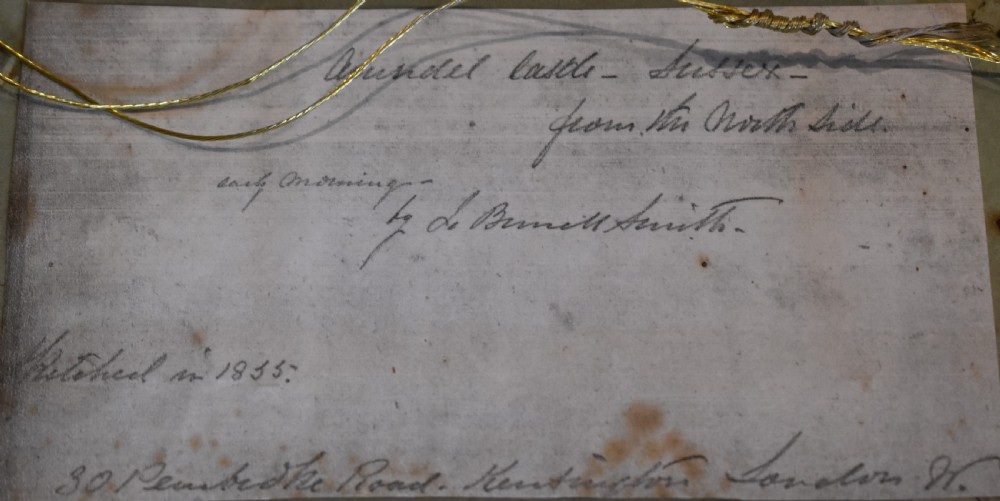 Arundel Castle - Sussex -
from the North Side.
early morning -
by L Burnell Smith -
Sketched in 1855.
30 Pembroke Road. Kensington London W.